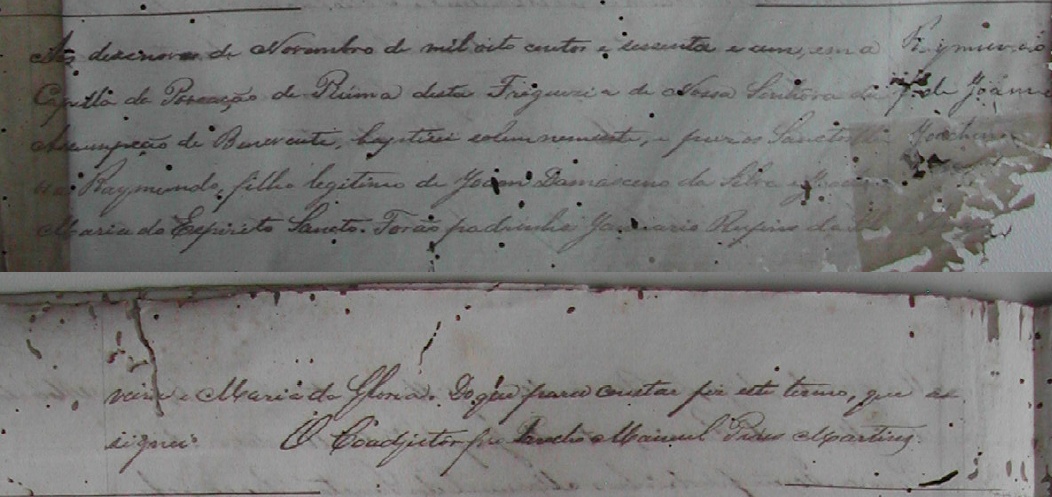 Aos desenove de Novembro de mil oito centos e sessenta e um, em a
Capella da Povoação de Piúma desta Freguezia de Nossa Senhora da
Assumpção de Benevente, baptisei solemnemente, e puz os Sanctos
Raymundo, filho legitimo de Joam Damasceno da Silva e
Maria do Espirito Sancto. Forão padrinhos Januario Rufino da
Raymundo
f. de Joam
Joachina
e Maria da Gloria. Do que para constar fiz este termo, que as
signei. O Coadjutor Manuel Pires Martins